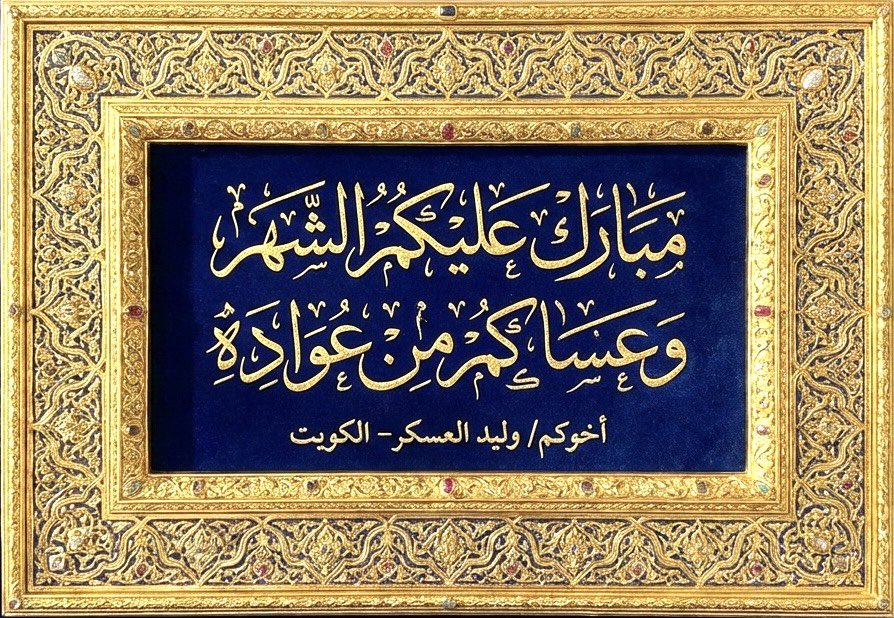 مَبَارَكْ عَلَيْكُمُ الشَّهَر
وَعَسَاكُمُ مِنْ عُوَادِهْ
أخوكم/ وليد العسكر - الكويت